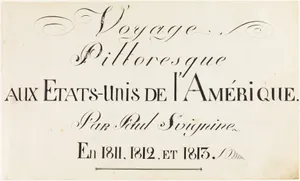 Voyage
Pittoresque
AUX ETATS-UNIS DE l'AMÉRIQUE.
Par Paul Svignine
EN 1811, 1812, ET 1813.